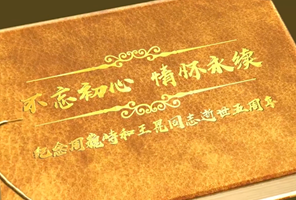 不忘初心 情怀永续
纪念周巍峙和王昆同志逝世五周年